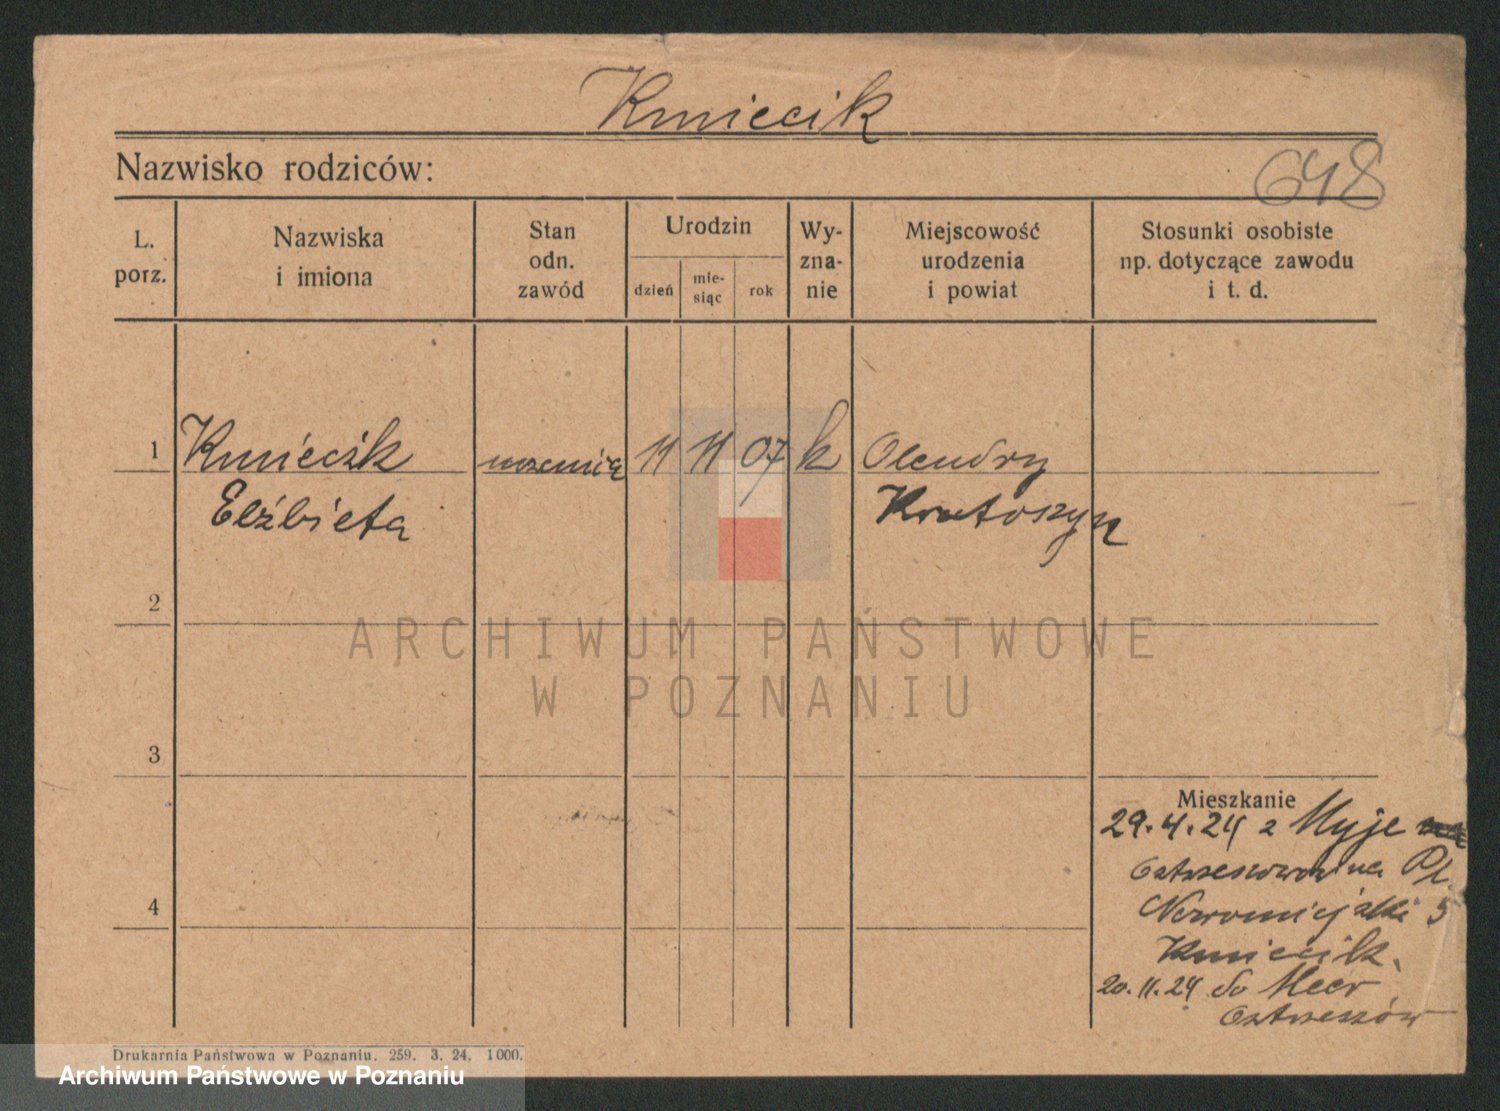 Kmiecik
Nazwisko rodziców:
648
L. porz.
Nazwiska i imiona
Stan odn. zawód
Urodzin
dzień
mie-
siąc
rok
Wy-
zna-
nie
Miejscowość urodzenia i powiat
Stosunki osobiste np. dotyczące zawodu i t. d.
1 Kmiecik uczenica 11 11 07 k Olendry
Elżbieta Krotoszyn
2
3
4
ARCHIWUM PAŃSTWOWE
W POZNANIU
Mieszkanie
29.4.24 z Myje
na Pl.
Nowomiejski 5
Kmiecik
20.11.24 do
Ostrzeszów
Drukarnia Państwowa w Poznaniu. 259. 3. 24. 1000.
Archiwum Państwowe w Poznaniu